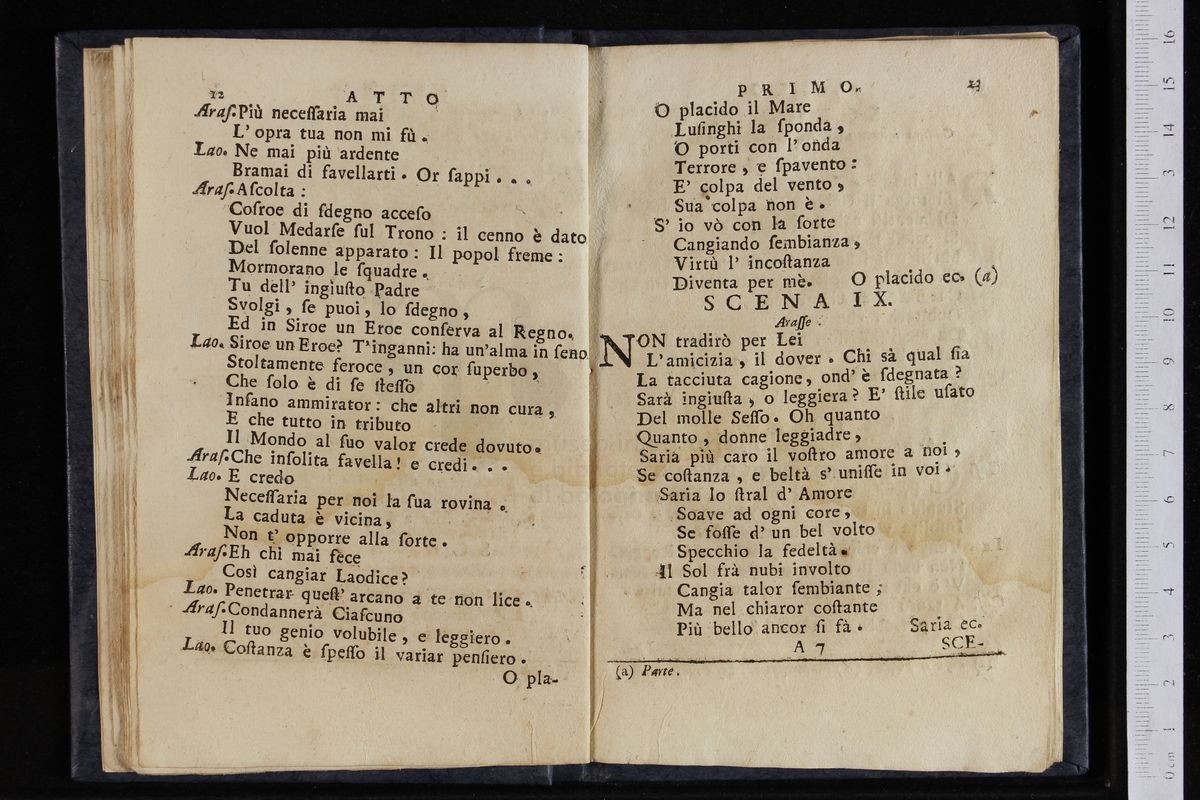 12 ATTO
Araſ. Più neceſſaria mai
L' opra tua non mi fù .
Lao. Ne mai più ardente
Bramai di favellarti . Or ſappi . . .
Araſ. Aſcolta :
Coſroe di ſdegno acceſo
Vuol Medarſe ſul Trono : il cenno è dato
Del ſolenne apparato : Il popol freme :
Mormorano le ſquadre .
Tu dell' ingiuſto Padre
Svolgi , ſe puoi , lo ſdegno ,
Ed in Siroe un Eroe conſerva al Regno.
Lao. Siroe un Eroe? T'inganni: ha un'alma in ſeno
Stoltamente feroce , un cor ſuperbo ,
Che ſolo è di ſe ſteſſo
Inſano ammirator : che altri non cura ,
E che tutto in tributo
Il Mondo al ſuo valor crede dovuto.
Araſ. Che inſolita favella ! e credi . . .
Lao. E credo
Neceſſaria per noi la ſua rovina .
La caduta è vicina ,
Non t' opporre alla ſorte .
Araſ. Eh chi mai fece
Così cangiar Laodice ?
Lao. Penetrar queſt' arcano a te non lice .
Araſ. Condannerà Ciaſcuno
Il tuo genio volubile , e leggiero .
Lao. Coſtanza è ſpeſſo il variar penſiero .
O pla-
PRIMO. 13
O placido il Mare
Luſinghi la ſponda ,
O porti con l' onda
Terrore , e ſpavento :
E' colpa del vento ,
Sua colpa non è .
S' io vò con la ſorte
Cangiando ſembianza ,
Virtù l' incoſtanza
Diventa per mè. O placido ec. (a)
SCENA IX.
Araſſe .
NON tradirò per Lei
L'amicizia , il dover . Chi sà qual ſia
La tacciuta cagione , ond' è ſdegnata ?
Sarà ingiuſta , o leggiera ? E' ſtile uſato
Del molle Seſſo. Oh quanto
Quanto , donne leggiadre ,
Saria più caro il voſtro amore a noi ,
Se coſtanza , e beltà s' uniſſe in voi .
Saria lo ſtral d' Amore
Soave ad ogni core ,
Se foſſe d' un bel volto
Specchio la fedeltà.
Il Sol frà nubi involto
Cangia talor ſembiante ;
Ma nel chiaror coſtante
Più bello ancor ſi fà . Saria ec.
A 7 SCE-
(a) Parte .
0 cm 1 2 3 4 5 6 7 8 9 10 11 12 13 14 15 16